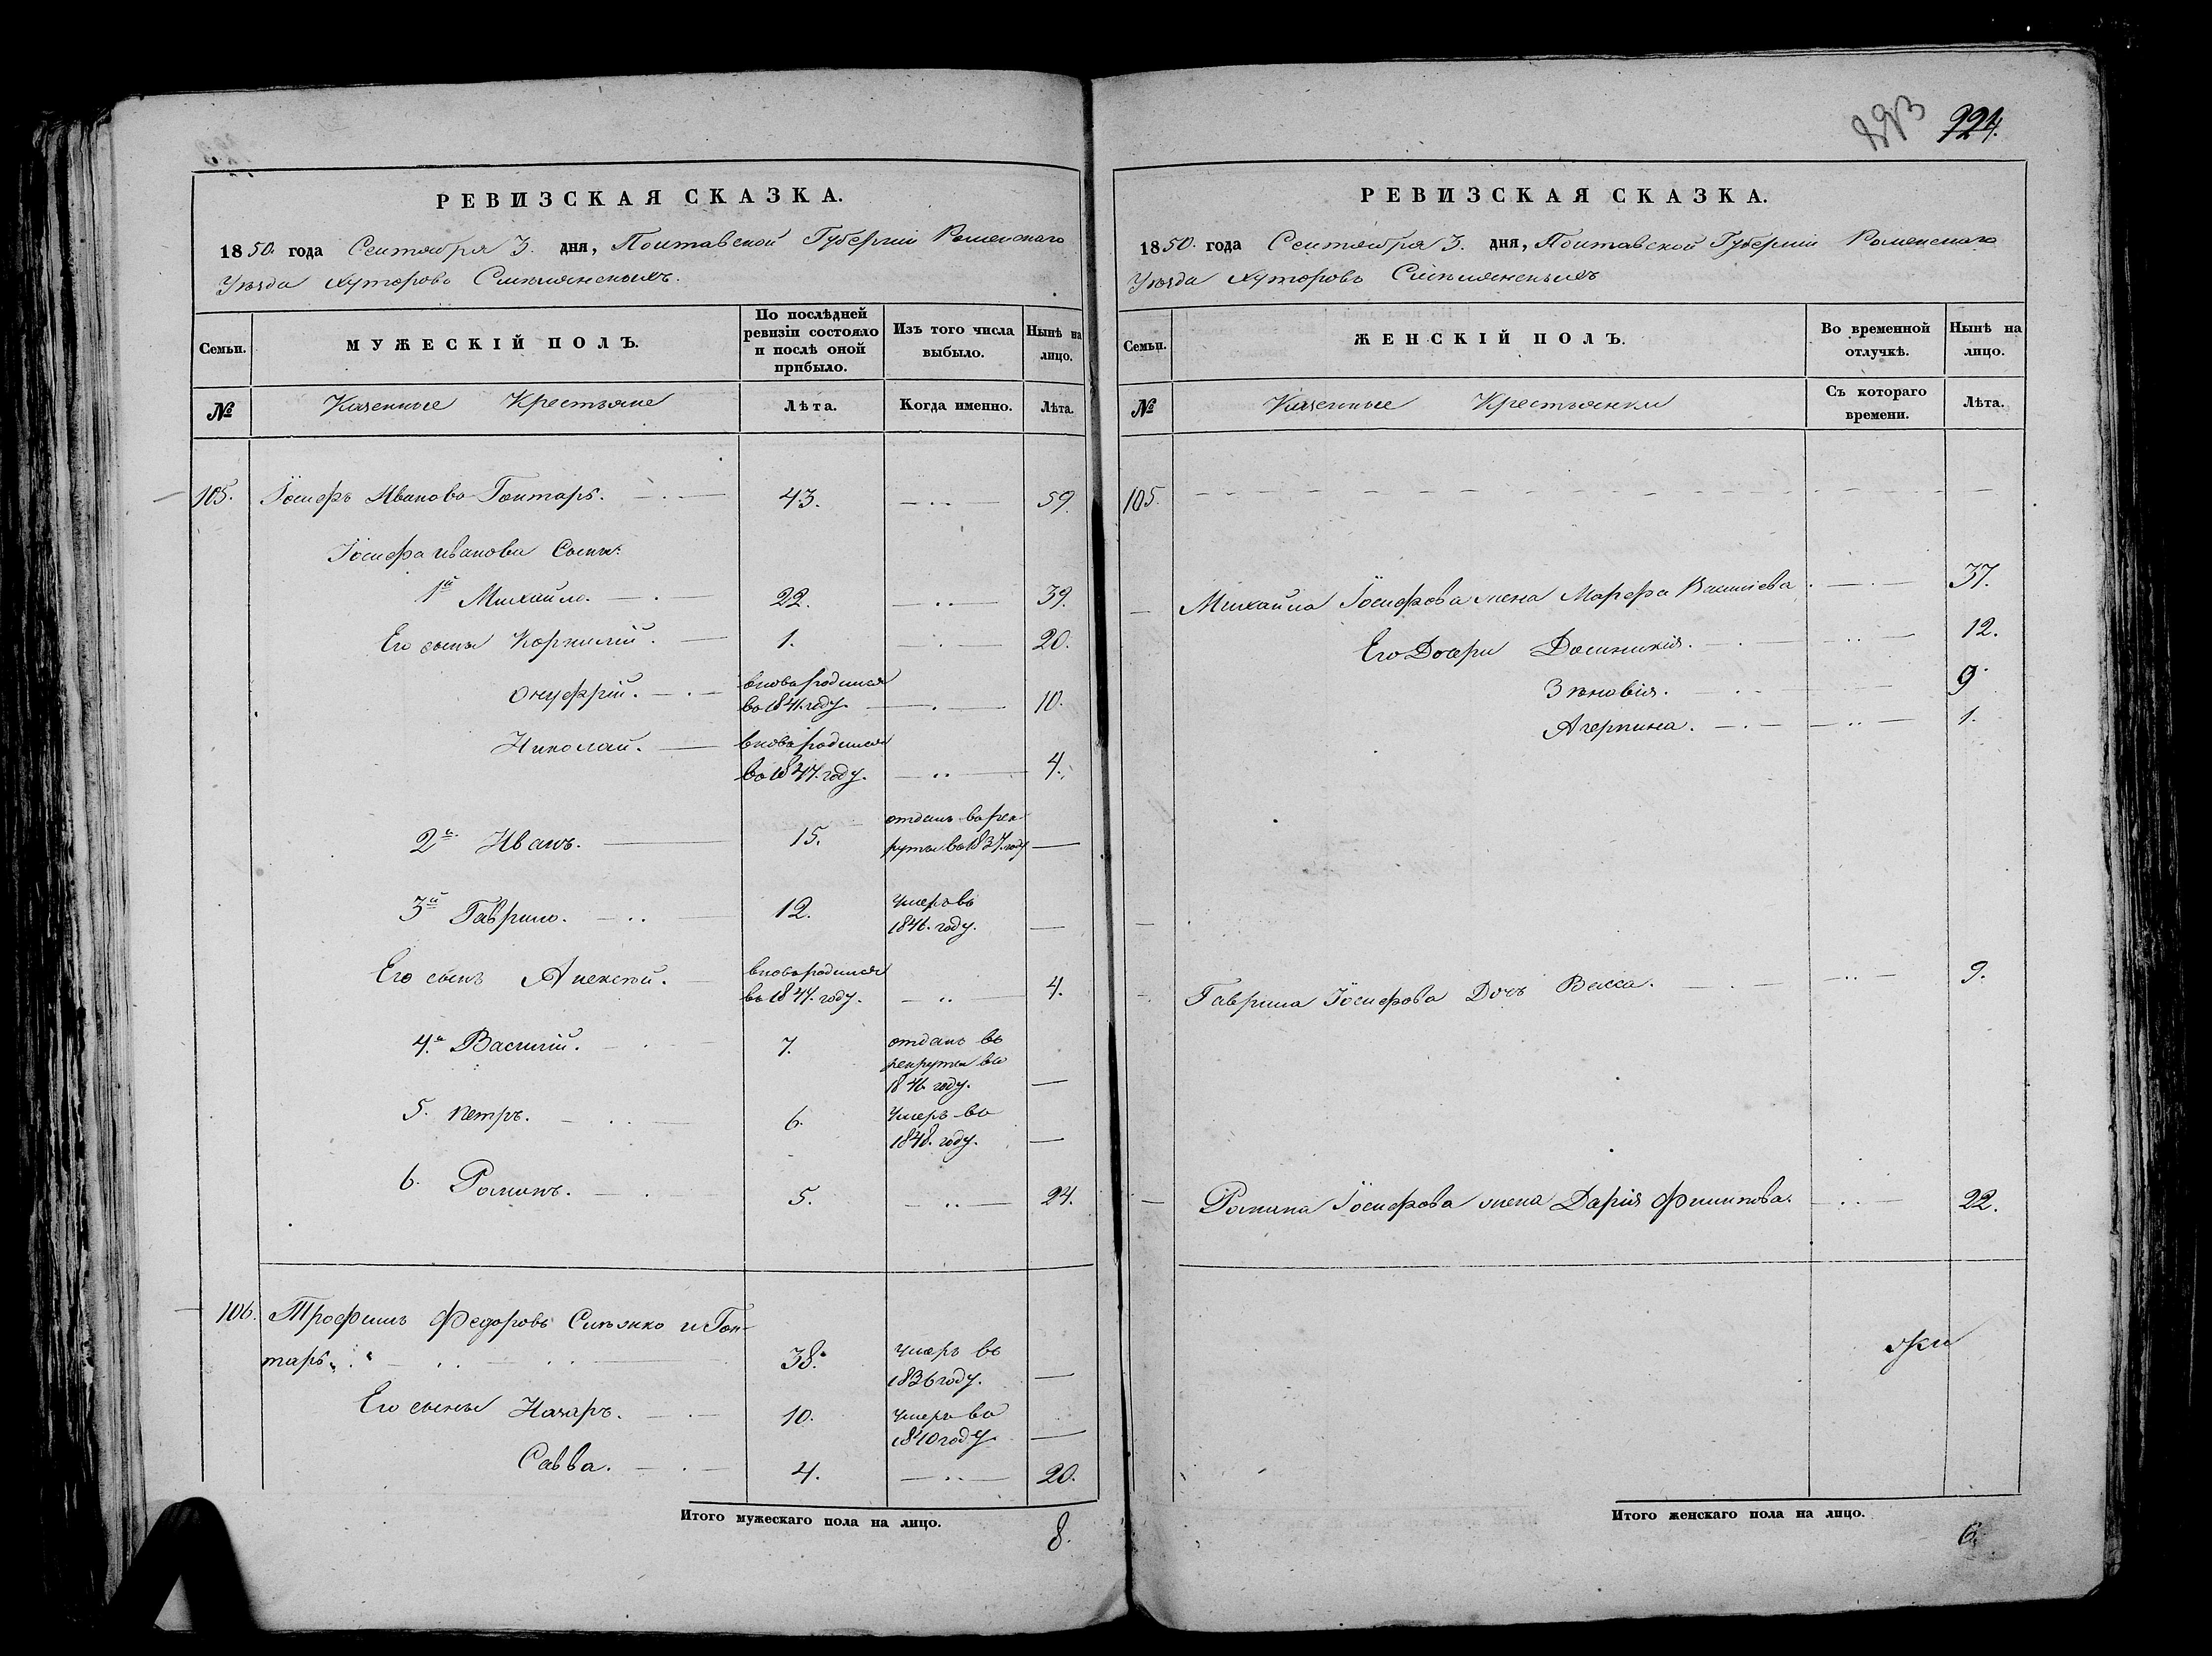 224.
РЕВИЗСКАЯ СКАЗКА.
1850. года Сентября 3. дня, Полтавской Губерніи Роменскаго
Уѣзда хуторовъ
МУЖЕСКІЙ ПОЛЪ.
Семьи.
По послѣдней ревизіи состояло и послѣ оной прибыло.
Изъ того числа выбыло.
Нынѣ на лицо.
№
Казенные Крестьяне
Лѣта.
Когда именно.
Лѣта.
105. Іосифъ Ивановъ Гонтарь. 43. 59.
Іосифа Иванова Сыны:
1й Михайло. 22. 39.
Его сыны Корнилій. 1. 20.
Онуфрій. вновь родился
въ 1841. году. 10.
Николай. вновь родился
въ 1847. году. 4.
2й Иванъ. 15. отданъ въ рек-
руты въ 1837. году
3й Гаврило. 12. Умеръ въ
1846. году.
Его сынъ Алексѣй. вновь родился
въ 1847. году. 4.
4й Василій. 7. отданъ въ
рекруты въ
1846. году.
5. Петръ. 6. Умеръ въ
1848. году.
6. Романъ. 5. 24.
106. Трофимъ Федоровъ Сипъянко и Гон-
тарь. 38. Умеръ въ
1836 году.
Его сыны Назаръ. 10. Умеръ въ
1840 году
Савва. 4. 20.
Итого мужескаго пола на лицо.
8.
РЕВИЗСКАЯ СКАЗКА.
1850. года Сентября 3. дня, Полтавской Губерніи Роменскаго
Уѣзда хуторовъ
Семьи.
ЖЕНСКІЙ ПОЛЪ.
Во временной отлучкѣ.
Нынѣ на лицо.
№
Казенные Крестьянки
Съ котораго времени.
Лѣта.
105.
Михайла Іосифова жена Марфа Васильева 37.
Его Дочери Домникія. 12.
Зѣновія. 9.
Агерпина. 1.
Гаврила Іосифова Дочь Васса. 9.
Романа Іосифова жена Дарія Филипова. 22.
Итого женскаго пола на лицо.
6.